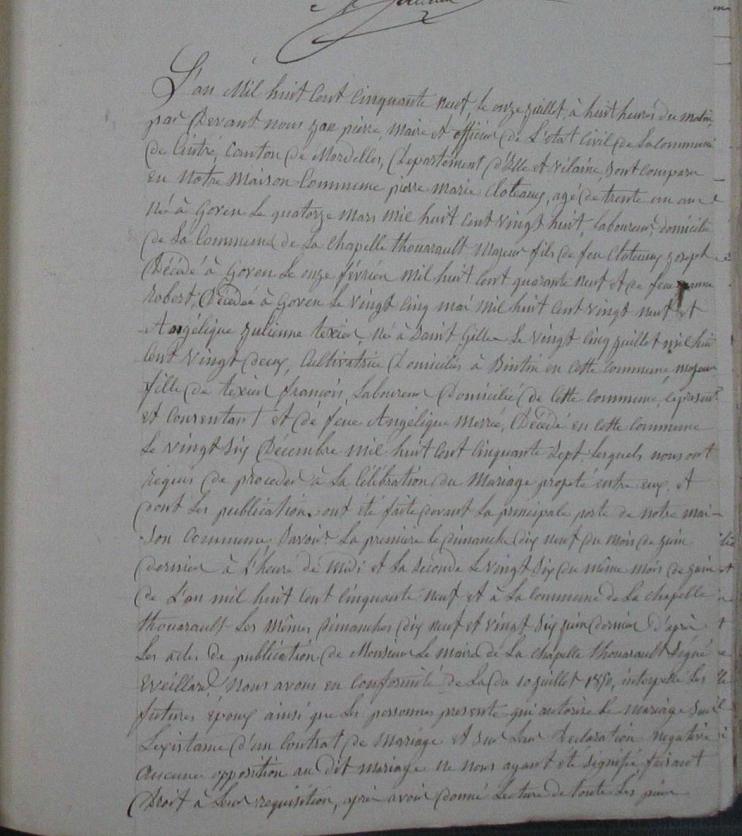 L'an Mil huit Cent Cinquante neuf le onze juillet, à huit heures du matin,
par Devant nous jan pierre, Maire et officier de L'état Civil de La Commune
de Cintré, Canton de Mordelles, Département d'Ille et Vilaine, Sont Comparu
en Notre Maison Commune pierre Marie Cloteaux, agé de trente un an
Né à Goven Le quatorze Mars mil huit Cent vingt huit, laboureur, domicilié
de La Commune de La Chapelle thouarault Majeur fils de feu Cloteaux joseph
Décédé à Goven Le onze février Mil huit Cent quarante neuf et de feue
Robert, Décédée à Goven Le vingt Cinq mai Mil huit Cent vingt neuf et
Angélique julienne texier, Né à Saint Gilles Le vingt Cinq juillet mil huit
Cent vingt deux, Cultivatrice Domiciliée à Bintin en Cette Commune majeur
fille de texier françois, Laboureur Domicilié de Cette Commune, ici présent
et Consentant et de feue Angélique Merré, Décédé en Cette Commune
Le vingt Six Décembre mil huit Cent Cinquante Sept Lesquels nous ont
requis de proceder à La Célébration du Mariage projeté entre eux, et
dont Les publication ont été faite devant La principale porte de notre mai-
Son Commune Savoir La première Le dimanche dix neuf du mois de juin
dernier à L'heure de Midi et La Seconde Le vingt Six du même mois de juin
de L'an mil huit Cent Cinquante neuf et à La Commune de La Chapelle
thouarault Les mêmes dimanches dix neuf et vingt Six juin dernier D'après
Les actes de publication de Monsieur Le Maire de La Chapelle thouarault Signé
Eveillard, Nous avons en Conformité de La du 10 juillet 1850, interpellé Les
futures epoux ainsi que Les personnes presente qui autorise Le Mariage Sur
L'existame d'un Contrat de Mariage et Sur Leur Declaration negative
aucune opposition au dit mariage ne nous ayant eté Signifié faisant
Droit à Leur requisition, après avoir donné Lecture de toute Les pièces